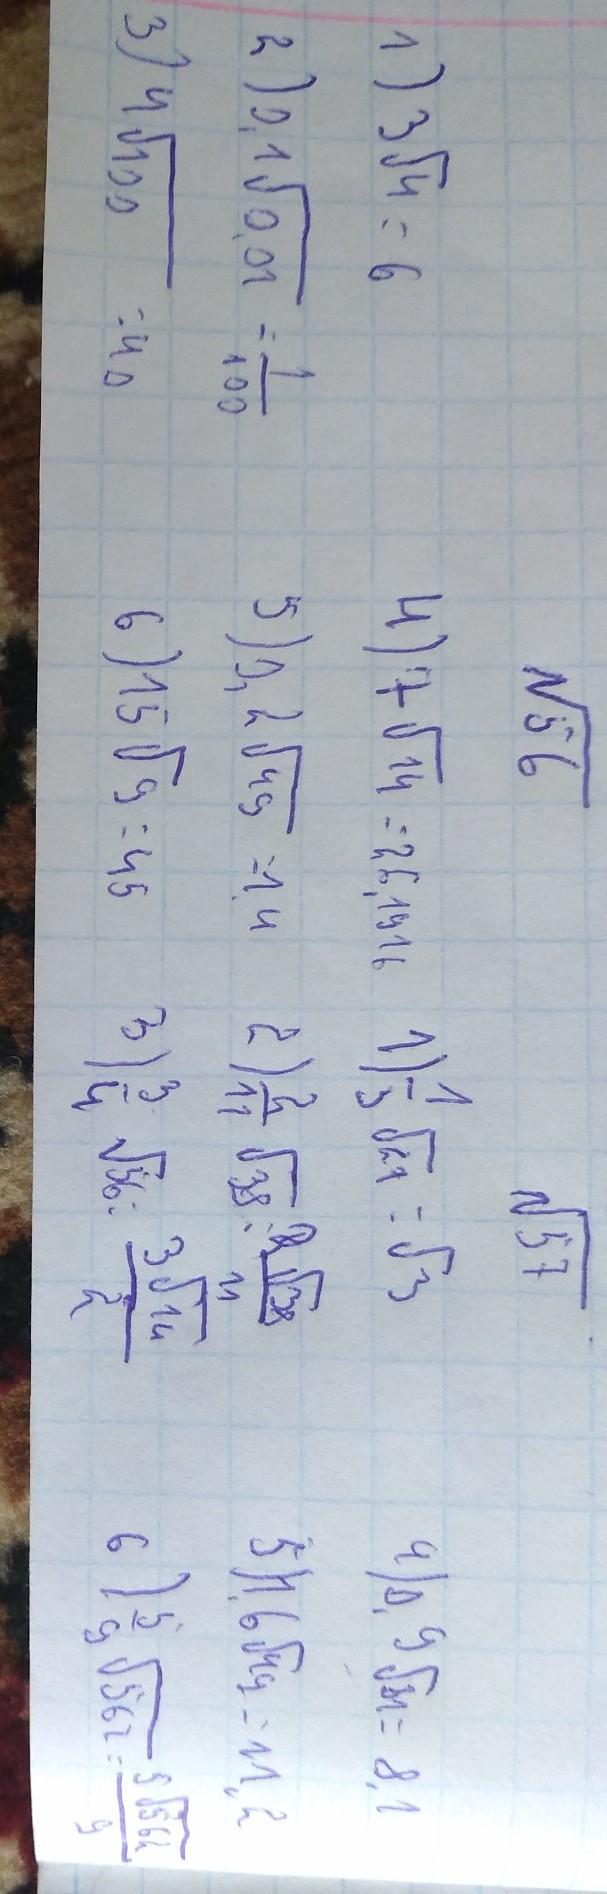 √56
√57
1) 3√4 = 6
2) 0,1√0,01 = 1/100
3) 4√100 = 40
4) 7√14 = 26,1916
5) 0,2√49 = 1,4
6) 15√9 = 45
1) 1/3 √27 = √3
2) 2/11 √38 = 2√38/11
3) 3/4 √56 = 3√14/2
4) 0,9√81 = 8,1
5) 1,6√49 = 11,2
6) 5/9 √562 = 5√562/9